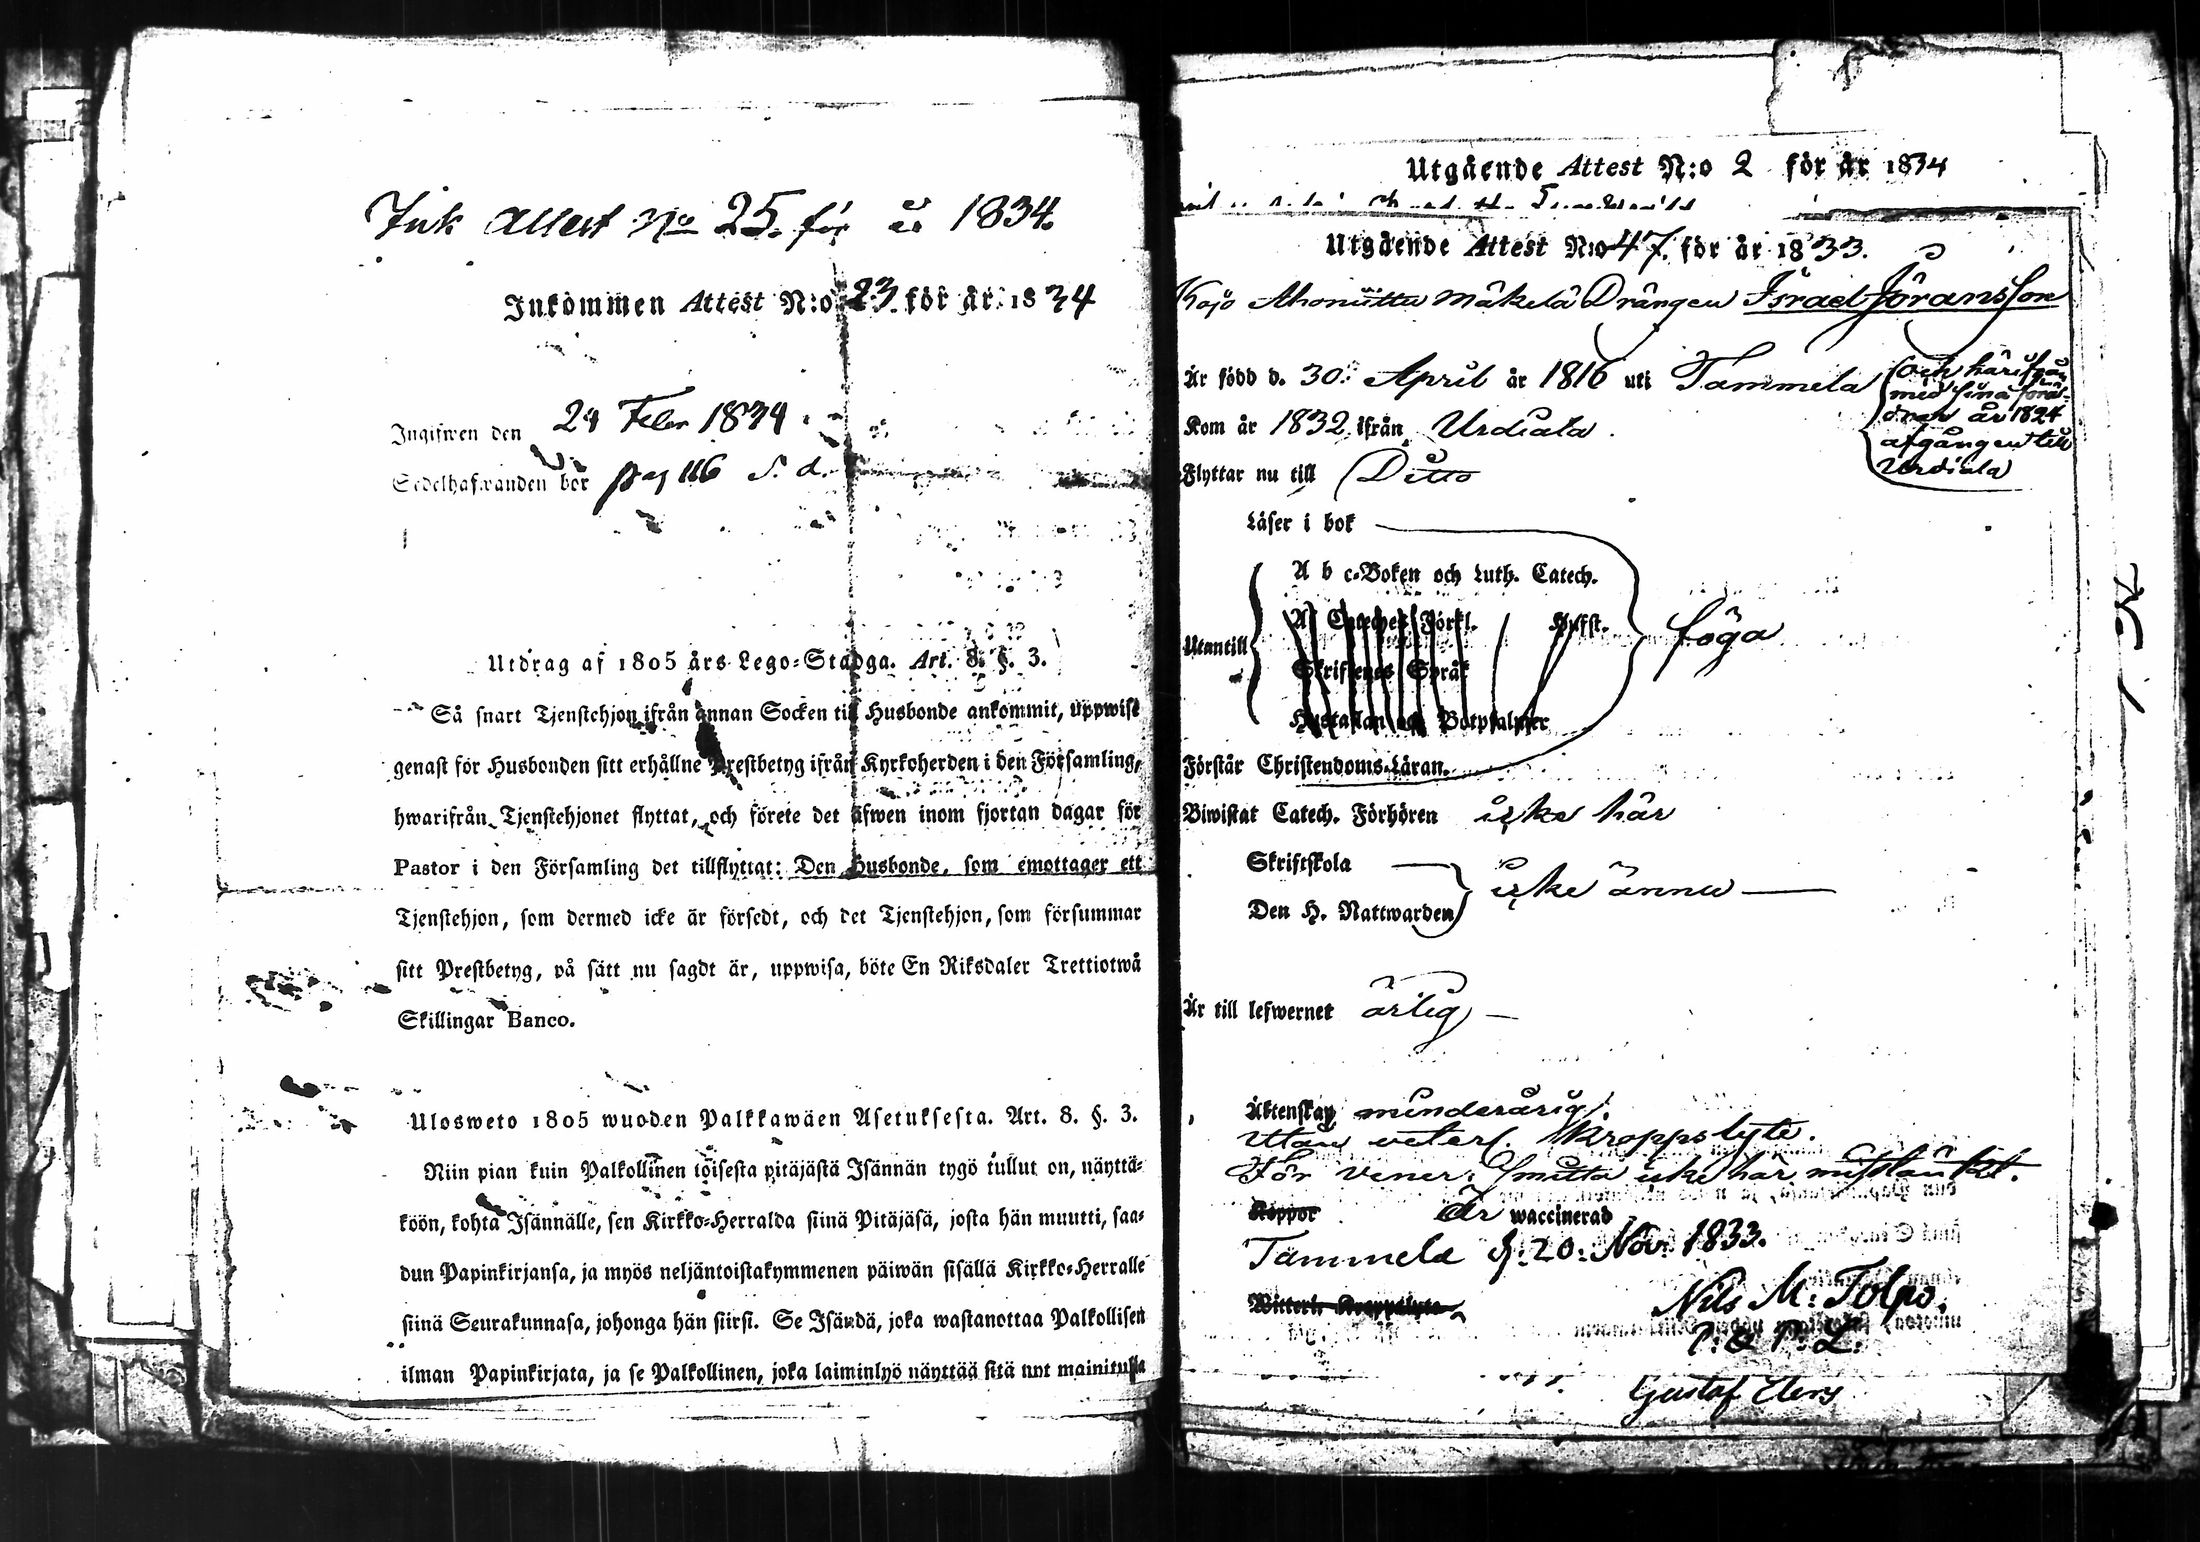 Ink Attest No 25. för år 1834.
Inkommen Attest N:o 23. för år 1834
Ingifwen den 24 Febr 1834
Sedelhafwanden bor pag 116 S. d.
Utdrag af 1805 års Lego-Stadga. Art. 8. §. 3.
Så snart Tjenstehjon ifrån annan Socken till Husbonde ankommit, uppwise
genast för Husbonden sitt erhållne Prestbetyg ifrån Kyrkoherden i den Församling,
hwarifrån Tjenstehjonet flyttat, och förete det äfwen inom fjortan dagar för
Pastor i den Församling det tillflyttat: Den Husbonde, som emottager ett
Tjenstehjon, som dermed icke är försedt, och det Tjenstehjon, som försummar
sitt Prestbetyg, på sätt nu sagdt är, uppwisa, böte En Riksdaler Trettiotwå
Skillingar Banco.
Ulosweto 1805 wuoden Palkkawäen Asetuksesta. Art. 8. §. 3.
Niin pian kuin Palkollinen toisesta pitäjästä Isännän tygö tullut on, näyttä-
köön, kohta Isännälle, sen Kirkko-Herralda siinä Pitäjäsä, josta hän muutti, saa-
dun Papinkirjansa, ja myös neljäntoistakymmenen päiwän sisällä Kirkko-Herralle
siinä Seurakunnasa, johonga hän siirsi. Se Isändä, joka wastanottaa Palkollisen
ilman Papinkirjata, ja se Palkollinen, joka laiminlyö näyttää sitä nyt mainitulla
Utgående Attest N:o 2 för år 1834
Utgående Attest N:o 47. för år 1833.
Kojo Ahonuittu Mäkelä Drängen Israel Göransson
Är född d. 30: April år 1816 uti Tammela
(och härifrån
med sina föräl-
drar år 1824
afgången till
Urdiala
Kom år 1832 ifrån Urdiala.
Flyttar nu till Ditto
Läser i bok
A b c-Boken och Luth. Catech.
A. Cateches Förkl. Hyfst.
Utantill
föga
Skriftenes Språk
Hustaflan och Botpsalmer
Förstår Christendoms-Läran.
Biwistat Catech. Förhören icke här
Skriftskola
icke ännu
Den H. Nattwarden
Är till lefwernet ärlig
Äktenskap minderårig.
Utan veterl. Kroppslyte.
För vener. smitta icke här misstänkt.
Koppor Är waccinerad
Tammela d. 20. Nov. 1833.
Witterl. Kroppslyte
Nils M. Tolpo.
P: & P: L:
Gustaf